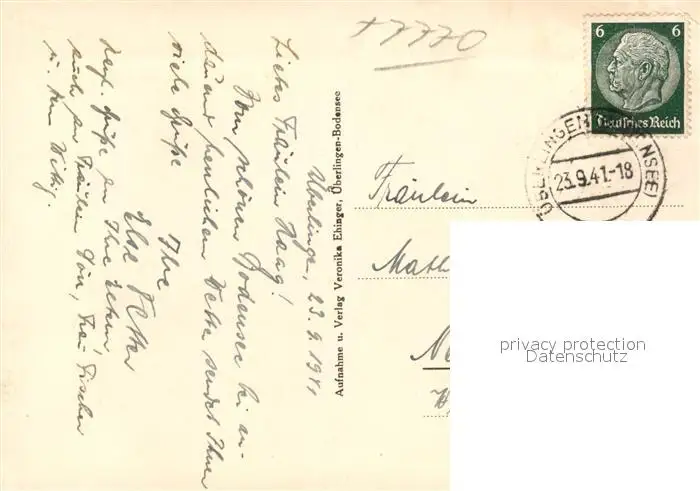 +7770
6 6
Deutsches Reich
ÜBERLINGEN (BODENSEE)
23.9.41.-18
Überlingen, 23.9.1941
Liebes Fräulein Haag!
Vom schönen Bodensee bei an-
dauernd herrlichem Wetter sendet Ihnen
viele Grüße
Ihre
Else Vetter
Herzl. Grüße an Ihre Eltern,
auch an Fräulein Dön, Frau Fischer
u. Herrn
Aufnahme u. Verlag Veronika Ehinger, Überlingen-Bodensee
Fräulein
Math
privacy protection
Datenschutz